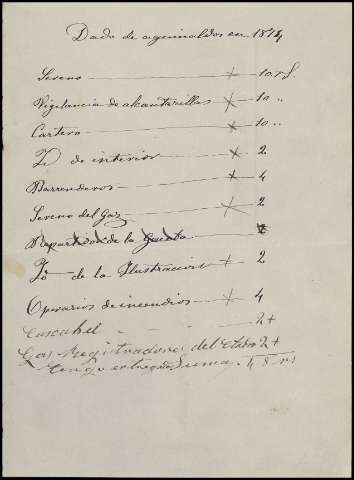 Dado de aguinaldos en 1874
Sereno + 10 rs.
Vigilancia de alcantarillas + 10 "
Cartero + 10 "
Id de interior + 2
Barrenderos + 4
Sereno del Gas + 2
Repartidor de la Gaceta
Id de la Ilustracion + 2
Operarios de incendios + 4
Cascabel 2 +
Gas Registradores del 2 +
Tengo entregados Suma 48 rs